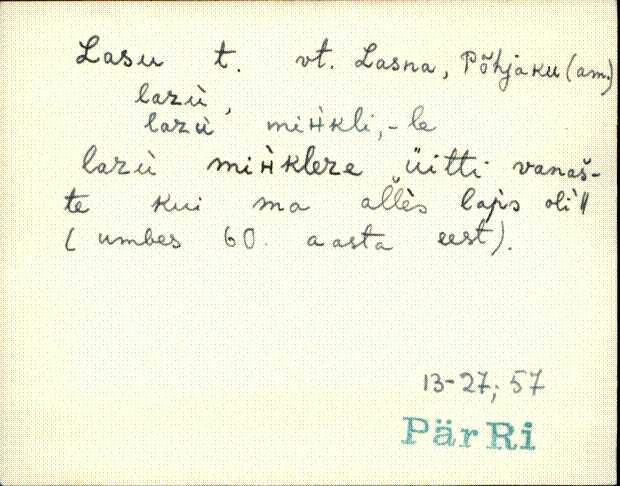 Lasu t. vt. Lasna, Põhjaku (am.)
lazù,
lazù miʜ̀kli, -le
lazù miʜ̀kleze üitti vanaš-
te kui ma alles lapś oli"
(umbes 60. aasta eest).
13-27; 57
Pär Ri